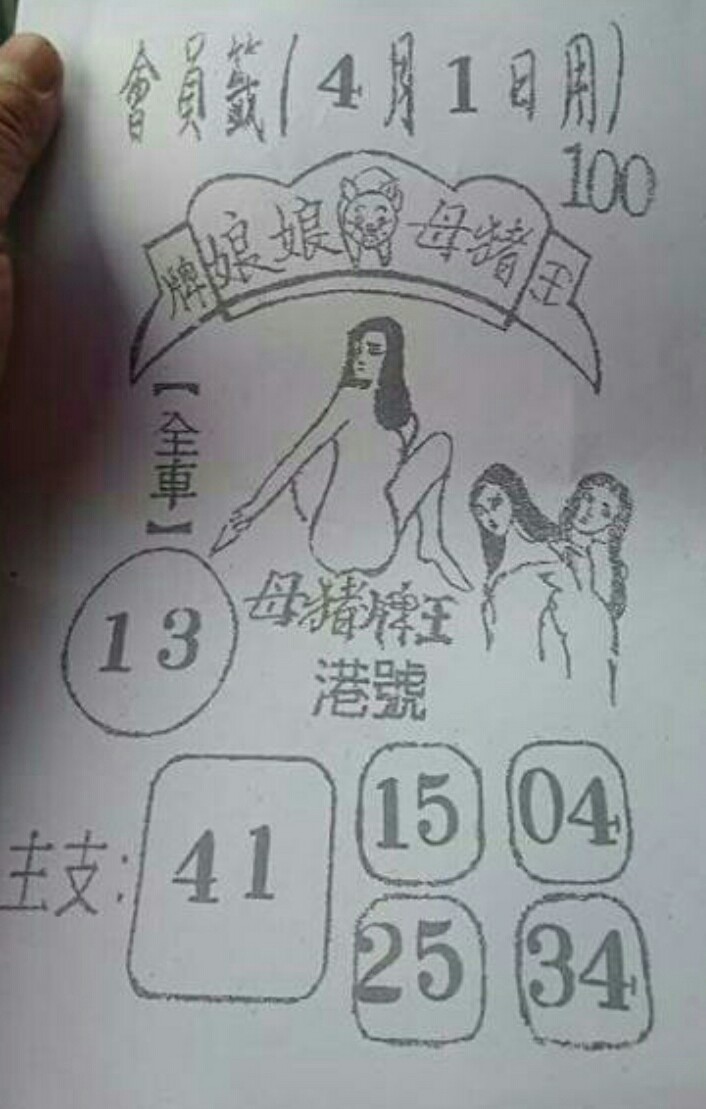 會員籤(4月1日用)
100
牌娘娘母猪王
【全車】
13
母猪牌王
港號
主支:
41
15 04
25 34